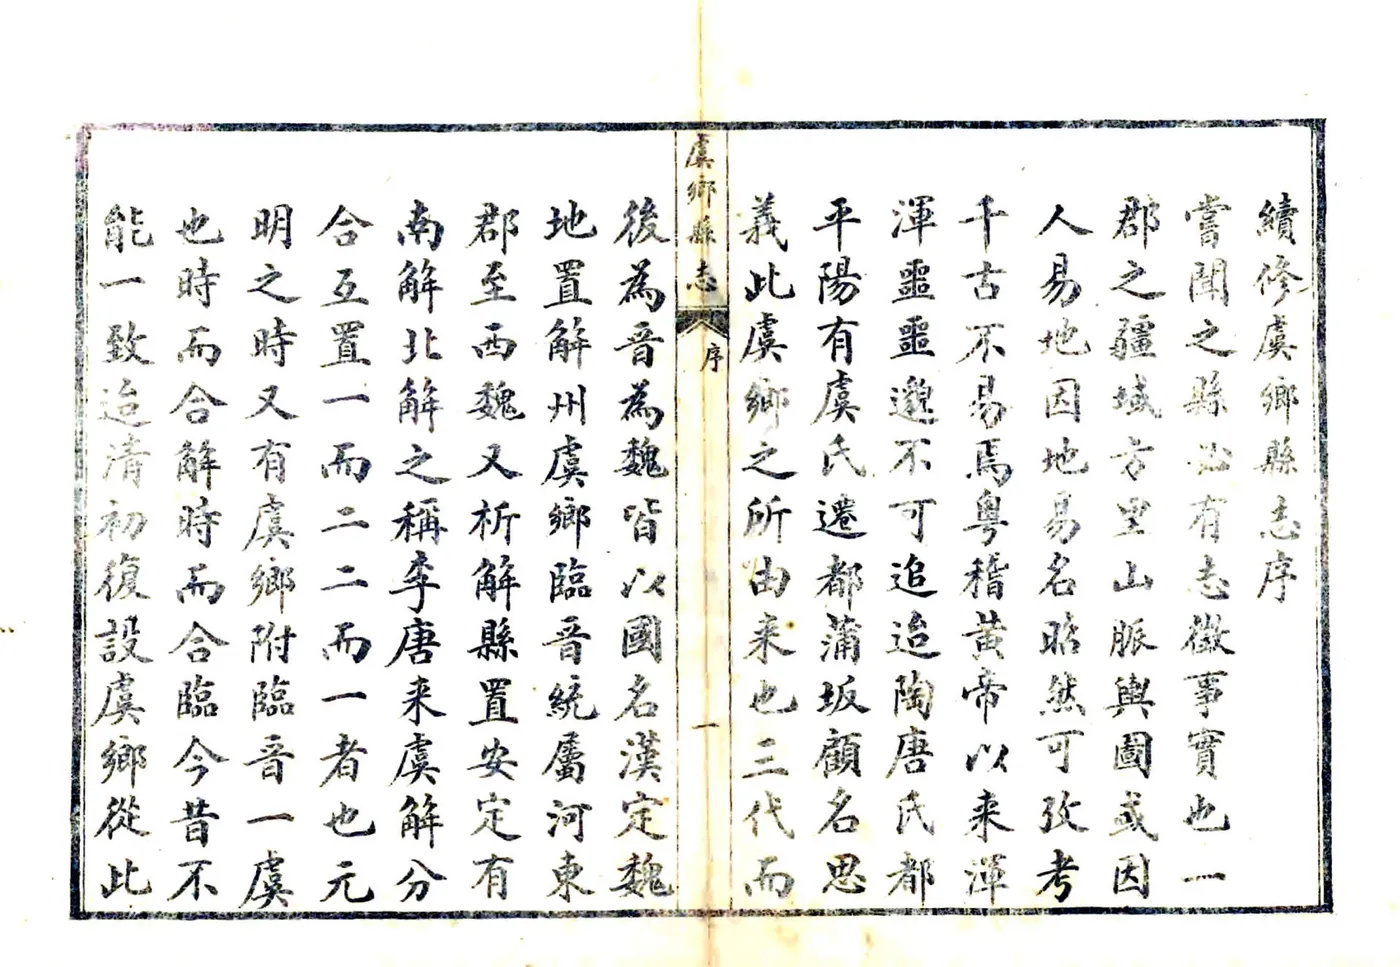 續修虞鄉縣志序
嘗聞之縣必有志徵事實也一
郡之疆域方里山脈輿圖或因
人易地因地易名昭然可攷考
千古不易焉粵稽黃帝以来渾
渾噩噩邈不可追迨陶唐氏都
平陽有虞氏遷都蒲坂顧名思
義此虞鄉之所由来也三代而
虞鄉縣志
序
一
後為晉為魏皆以國名漢定魏
地置解州虞鄉臨晉統屬河東
郡至西魏又析解縣置安定有
南解北解之稱李唐来虞解分
合互置一而二二而一者也元
明之時又有虞鄉附臨晉一虞
也時而合解時而合臨今昔不
能一致迨清初復設虞鄉從此